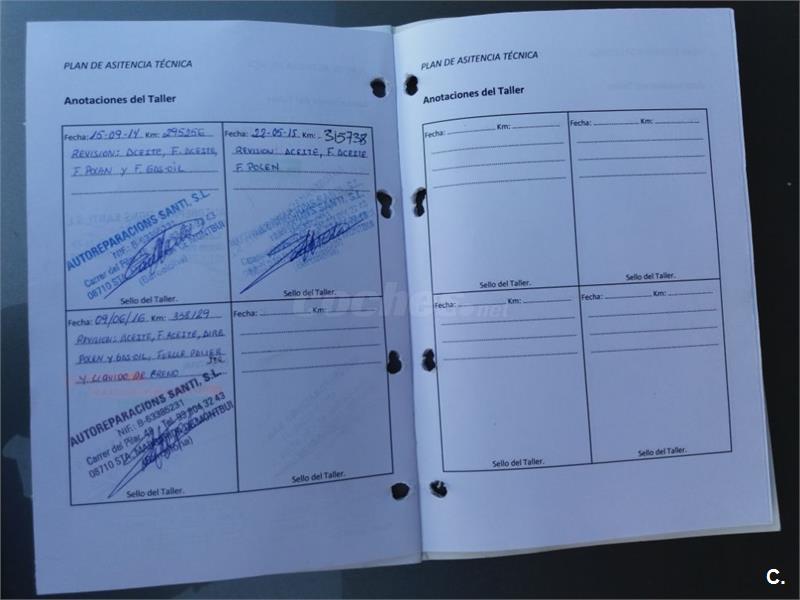 PLAN DE ASITENCIA TÉCNICA
Anotaciones del Taller
Fecha: 15-09-14 Km: 295256
REVISION: ACEITE, F. ACEITE,
F. POLEN Y F. GAS-OIL
AUTOREPARACIONS SANTI, S.L.
NIF.: B-63385231
Carrer del Pilar,
08710 STA.
(Barcelona)
Sello del Taller.
Fecha: 22-05-15 Km: 315738
REVISION: ACEITE, F. ACEITE
F. POLEN
Sello del Taller.
Fecha: 09/06/16 Km: 338129
REVISION: ACEITE, F. ACEITE, AIRE
POLEN Y GAS-OIL,
Y LIQUIDO DE FRENO
AUTOREPARACIONS SANTI, S.L.
NIF.: B-63385231
Carrer del Pilar, 49 - Tel. 93 804 32 43
08710 STA. MARGARIDA DE MONTBUI
Sello del Taller.
Fecha: Km:
Sello del Taller.
PLAN DE ASITENCIA TÉCNICA
Anotaciones del Taller
Fecha: Km:
Sello del Taller.
Fecha: Km:
Sello del Taller.
Fecha: Km:
Sello del Taller.
Fecha: Km:
Sello del Taller.
coches.net
C.